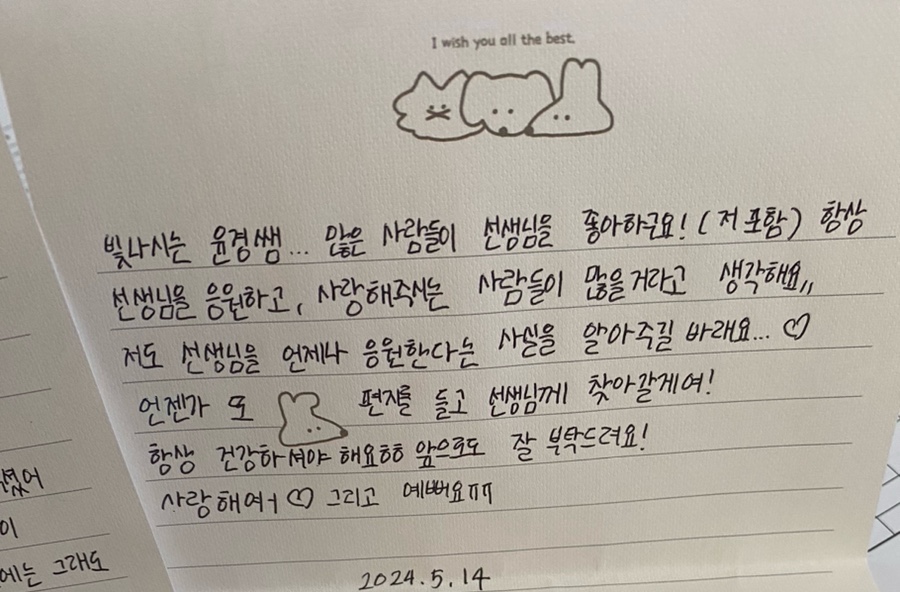 I wish you all the best.
빛나시는 윤경쌤... 많은 사람들이 선생님을 좋아하군요! (저 포함) 항상
선생님을 응원하고, 사랑해주시는 사람들이 많을거라고 생각해요,,
저도 선생님을 언제나 응원한다는 사실을 알아주길 바래요... ♡
언젠가 또 편지를 들고 선생님께 찾아갈게여!
항상 건강하셔야 해요ㅎㅎ 앞으로도 잘 부탁드려요!
사랑해여ㅓ ♡ 그리고 예뻐요ㅠㅠ
2024.5.14
셨어
이
에는 그래도